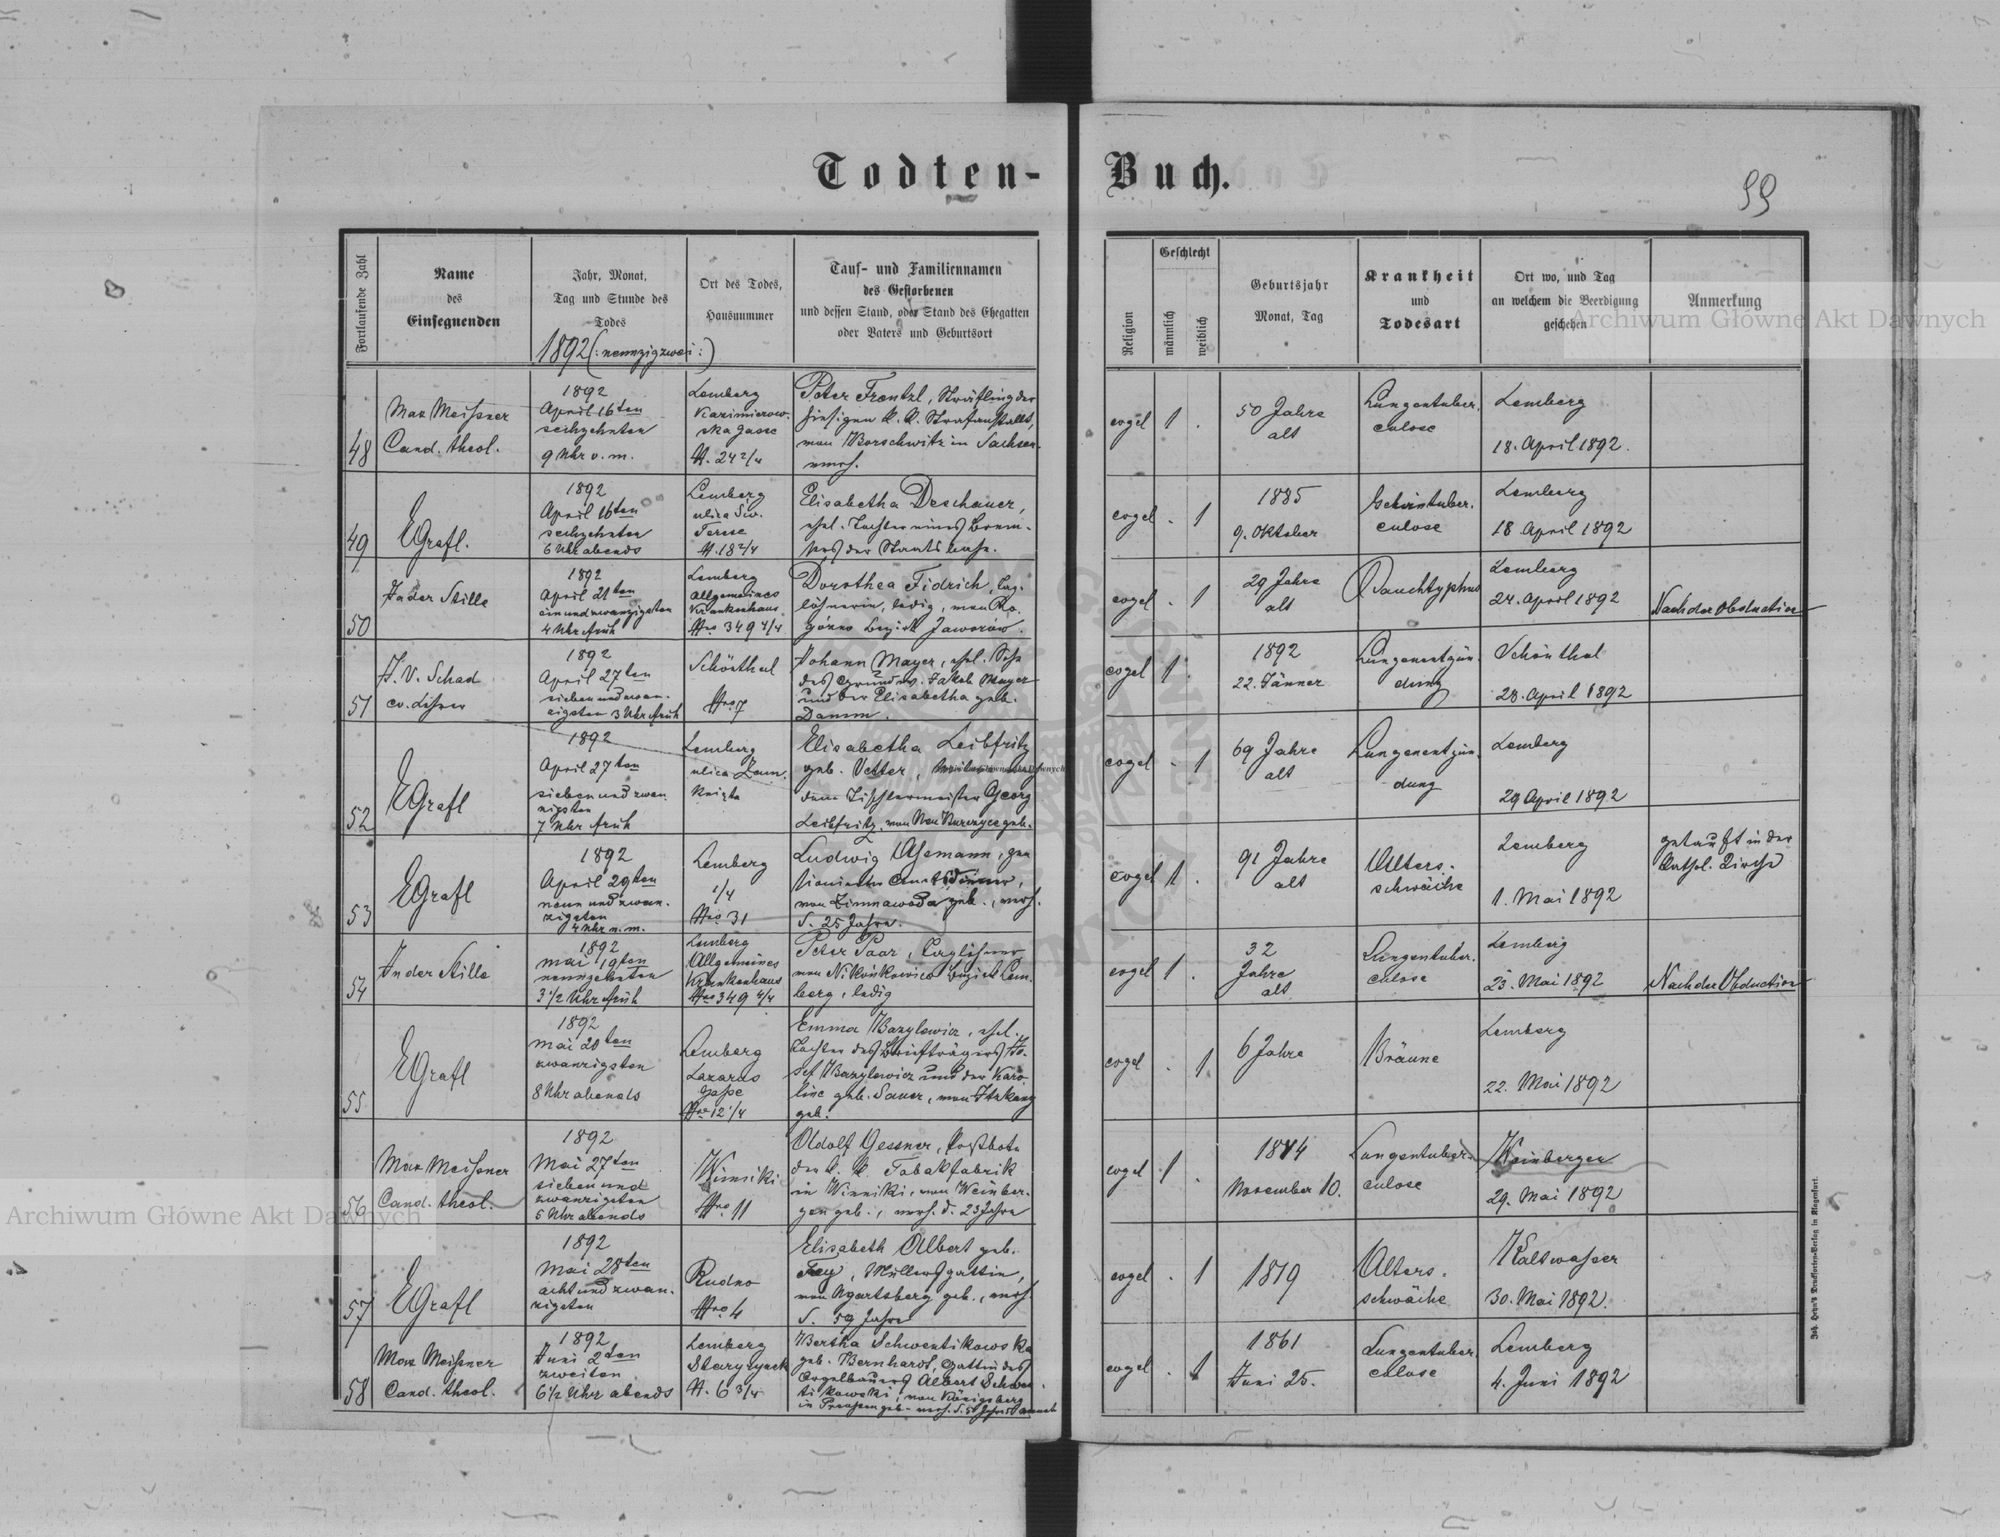 Todten-Buch.
99
Fortlaufende Zahl
Name
des
Einsegnenden
Jahr, Monat,
Tag und Stunde des
Todes
1892 (: nennzigzwei :)
Ort des Todes,
Hausnummer
Tauf- und Familiennamen
des Gestorbenen
und dessen Stand, oder Stand des Ehegatten
oder Vaters und Geburtsort
Religion
Geschlecht
männlich
weiblich
Geburtsjahr
Monat, Tag
Krankheit
und
Todesart
Ort wo, und Tag
an welchem die Beerdigung
geschehen
Anmerkung
48
Max Meißner
Cand. theol.
1892
April 16ten
sechzehnten
9 Uhr v. m.
Lemberg
Kazimierow-
ska gasse
N. 24 2/4
Peter Frentzl, Sträfling der
hiesigen k. k. Strafanstalt,
von Borschwitz in Sachsen
verh.
evgel
1
.
50 Jahre
alt
Lungentuber-
culose
Lemberg
18. April 1892.
49
EGrafl.
1892
April 16ten
sechzehnten
6 Uhr abends
Lemberg
ulica Św.
Terese
N. 18 2/4
Elisabetha Deschauer,
ehel. Tochter eines
der Staatsbahn.
evgel
.
1
1885
9. Oktober
culose
Lemberg
18 April 1892
50
In der Stille
1892
April 21ten
einundzwanzigsten
4 Uhr früh
Lemberg
Allgemeines
Krankenhaus
Nro 349 4/4
Dorothea Fidrich, Tag-
löhnerin, ledig, von Ro-
Bezirk Jaworów.
evgel
.
1
29 Jahre
alt
Bauchtyphus
Lemberg
24. April 1892
Nach der Obduction
51
J. V. Schad
ev. Lehrer
1892
April 27ten
siebenundzwan-
zigsten 3 Uhr früh
Schönthal
Nro 7
Johann Mayer, ehel. Sohn
des Grundw. Jakob Mayer
und der Elisabetha geb.
Damm.
evgel
1
.
1892
22. Jänner
Lungenentzün-
dung
Schönthal
28. April 1892
52
EGrafl
1892
April 27ten
siebenundzwan-
zigsten
7 Uhr früh
Lemberg
ulica Zam-
knięta
Elisabetha Leibfritz
geb. Vetter,
dem Tischlermeister Georg
Leibfritz, von Neu geb.
evgel
.
1
69 Jahre
alt
Lungenentzün-
dung
Lemberg
29 April 1892
53
EGrafl
1892
April 29ten
neunundzwan-
zigsten
4 Uhr n. m.
Lemberg
1/4
Nro 31
Ludwig Asemann, pen-
sionierter Amtsdiener,
von Zimnawoda geb., verh.
d. 25 Jahre.
evgel
1
.
91 Jahre
alt
Alters-
schwäche
Lemberg
1. Mai 1892
getauft in der
kathol. Kirche
54
In der Stille
1892
Mai 19ten
neunzehnten
3 1/2 Uhr früh
Lemberg
Allgemeines
Krankenhaus
Nro 349 4/4
Peter Paar, Taglöhner
von Nikinkowice Bezirk Lem-
berg, ledig
evgel
1
.
32
Jahre
alt
Lungentuber-
culose
Lemberg
23. Mai 1892
Nach der Obduction
55
EGrafl
1892
Mai 20ten
zwanzigsten
8 Uhr abends
Lemberg
Lazarus
gaße
Nro 12 1/4
Emma Bazylewicz, ehel.
Tochter des Briefträgers Jo-
sef Bazylewicz und der Karo-
line geb. Sauer, von
geb.
evgel
.
1
6 Jahre
Bräune
Lemberg
22. Mai 1892
56
Max Meißner
Cand. theol.
1892
Mai 27ten
siebenund
zwanzigsten
5 Uhr abends
Winniki
Nro 11
Adolf Gessner, Postbote
der k. k. Tabakfabrik
in Winniki, von Weinber-
gen geb., verh. d. 23 Jahre
evgel
1
.
November 10.
Lungentuber-
culose
Weinbergen
29. Mai 1892
57
EGrafl
1892
Mai 28ten
achtundzwan-
zigsten
Rudno
Nro 4
Elisabeth Albert geb.
Frey, Müllersgattin,
von Ugartsberg geb., verh
d. 59 Jahre
evgel
.
1
1819
Alters-
schwäche
Kaltwasser
30. Mai 1892.
58
Max Meißner
Cand. theol.
1892
Juni 2ten
zweiten
6 1/2 Uhr abends
Lemberg
Stary rynek
N. 6 3/4
Bertha Schwentikowska
geb. Bernhardt, Gattin des
Orgelbauers Albert Schwen-
tikowski, von Königsberg
in Preussen geb.
evgel
.
1
1861
Juni 25.
Lungentuber-
culose
Lemberg
4. Juni 1892
Joh. Heyn's Drucksorten-Verlag in Klagenfurt.
Archiwum Główne Akt Dawnych
Archiwum Główne Akt Dawnych